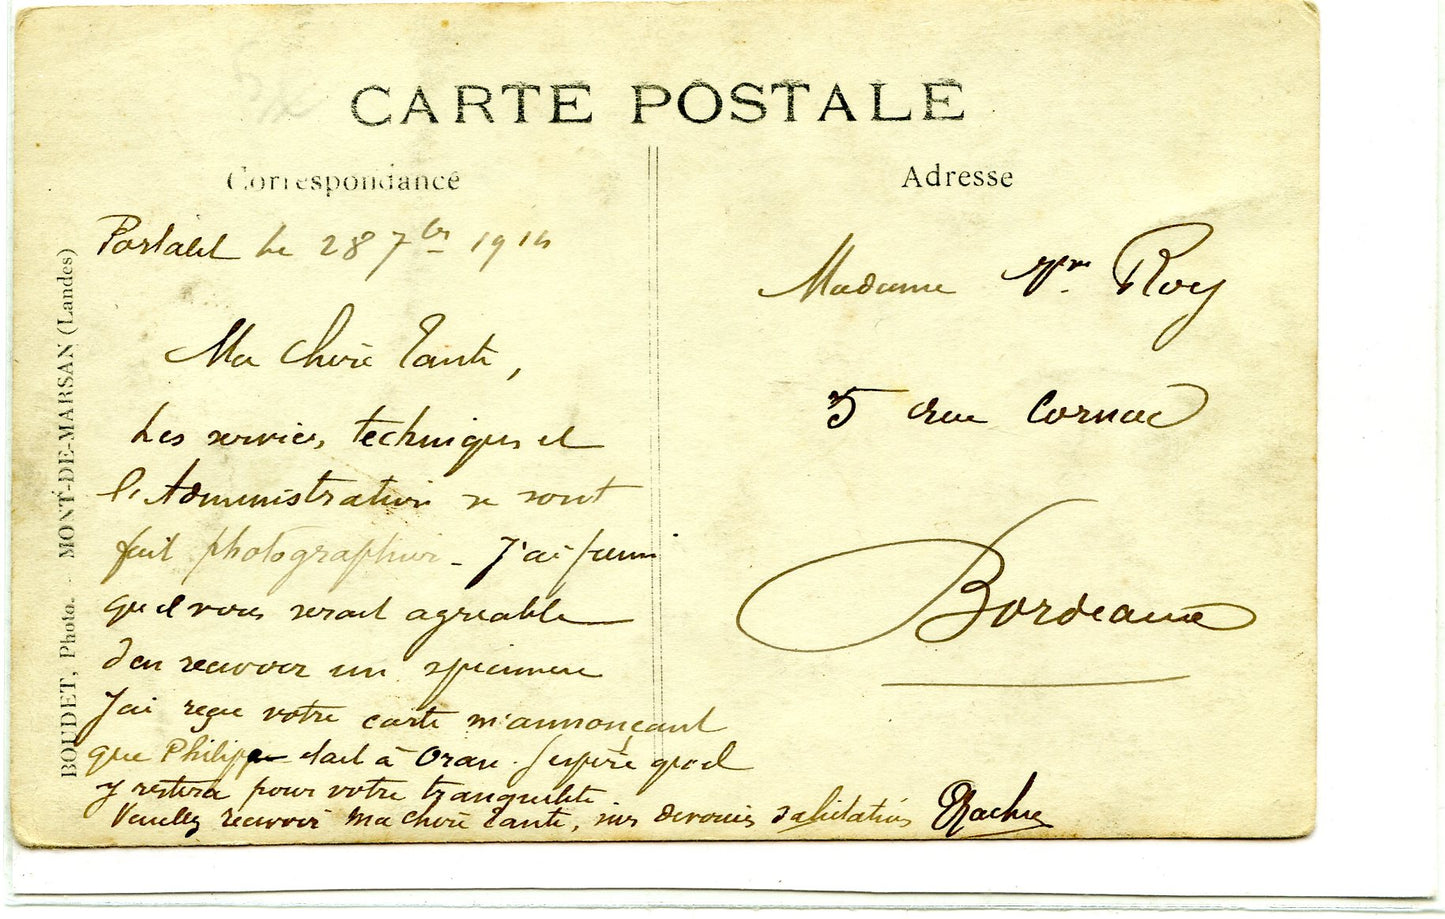 CARTE POSTALE
Correspondance
Adresse
le 28 7bre 1914
Ma chère Tante,
Les services techniques et
l'Administration se sont
fait photographier - J'ai pensé
qu'il vous serait agréable
d'en recevoir un specimen
J'ai reçu votre carte m'annonçant
que Philippe était à Oran. J'espère qu'il
y restera pour votre tranquilité
Veuillez recevoir Ma chère Tante, mes devouées salutations
Madame Vve Roy
5 rue Cornac
Bordeaux
BOUDET, Photo. - MONT-DE-MARSAN (Landes)